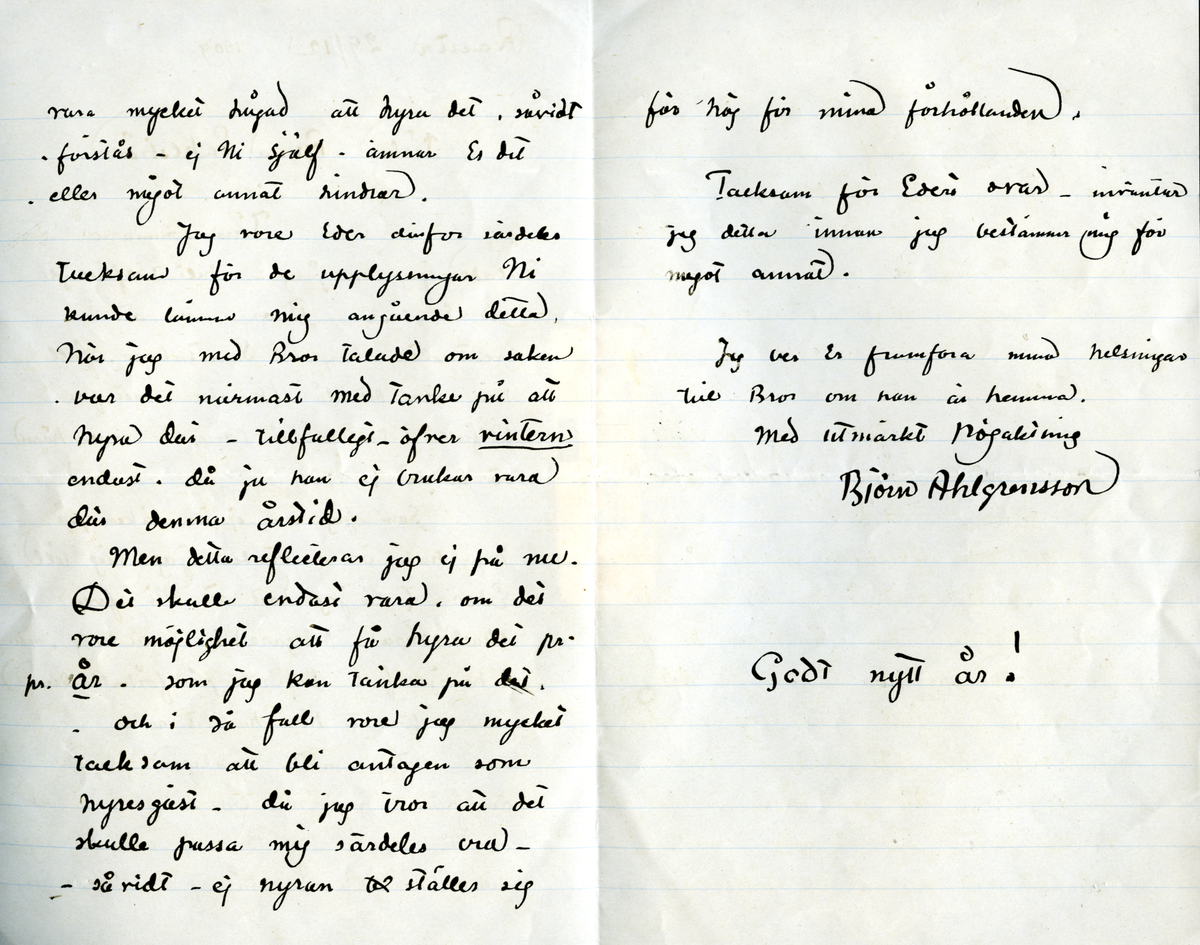 vara mycket hågad att hyra det, såvidt
- förstås - ej Ni själf - ämnar Er dit
- eller något annat hindrar.
Jag vore Eder därför särdeles
tacksam för de upplysningar Ni
kunde lämna mig angående detta.
När jag med Bror talade om saken
- var det närmast med tanke på att
hyra där - tillfälligt - öfver vintern
endast - då ju han ej brukar vara
där denna årstid.
Men detta reflecterar jag ej på nu.
Det skulle endast vara, om det
vore möjlighet att få hyra det pr.
pr. år - som jag kan tänka på det.
- och i så fall vore jag mycket
tacksam att bli antagen som
hyresgäst - då jag tror att det
skulle passa mig särdeles bra -
- såvidt - ej hyran ställer sig
för hög för mina förhållanden.
Tacksam för Eders svar - inväntar
jag detta innan jag bestämmer mig för
något annat.
Jag ber Er framföra mina helsingar
till Bror om han är hemma.
Med utmärkt högaktning
Björn Ahlgrensson
Godt nytt år!